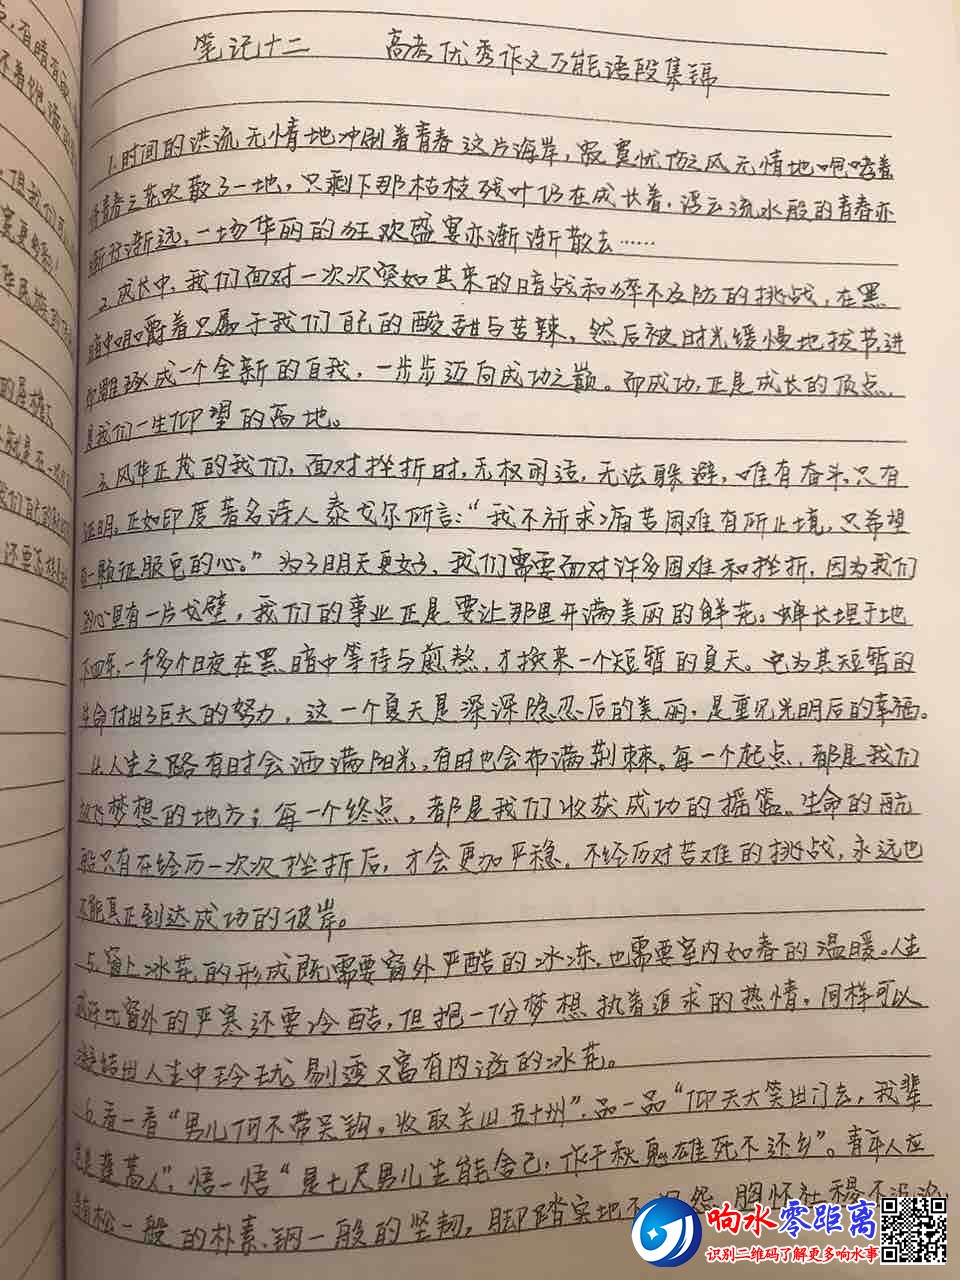 笔记十二 高考优秀作文万能语段集锦
1.时间的洪流无情地冲刷着青春这片海岸，寂寞忧伤之风无情地咆哮着
将青春之花吹散了一地，只剩下那枯枝残叶仍在成长着，浮云流水般的青春亦
渐行渐远，一场华丽的狂欢盛宴亦渐渐散去……
2.成长中，我们面对一次次突如其来的暗战和猝不及防的挑战，在黑
暗中咀嚼着只属于我们自己的酸甜与苦辣，然后被时光缓慢地拔节进
雕琢成一个全新的自我，一步步迈向成功之巅。而成功，正是成长的顶点，
是我们一生仰望的高地。
3.风华正茂的我们，面对挫折时，无权司适，无法躲避，唯有奋斗，只有
证明。正如印度著名诗人泰戈尔所言：“我不祈求痛苦困难有所止境，只希望
有一颗征服它的心。”为了明天更好，我们需要面对许多困难和挫折，因为我们
的心里有一片戈壁，我们的事业正是要让那里开满美丽的鲜花。蝉长埋于地
下四年，一千多个日夜在黑暗中等待与煎熬，才换来一个短暂的夏天。它为其短暂的
生命付出了巨大的努力，这一个夏天是深深隐忍后的美丽，是重见光明后的幸福。
4.人生之路有时会洒满阳光，有时也会布满荆棘。每一个起点，都是我们
放飞梦想的地方；每一个终点，都是我们收获成功的摇篮。生命的航
船只有在经历一次次挫折后，才会更加平稳，不经历对苦难的挑战，永远也
不能真正到达成功的彼岸。
5.窗上冰花的形成既需要窗外严酷的冰冻，也需要室内如春的温暖。人生
或许比窗外的严寒还要冷酷，但抱一份梦想执着追求的热情，同样可以
凝结出人生中玲珑剔透又富有内涵的冰花。
6.看一看“男儿何不带吴钩，收取关山五十州”，品一品“仰天大笑出门去，我辈
岂是蓬蒿人”，悟一悟“是七尺男儿生能舍己，作千秋鬼雄死不还乡”。青年人应
当有松一般的朴素、钢一般的坚韧，脚踏实地不怨，胸怀社稷不
响水零距离
识别二维码了解更多响水事